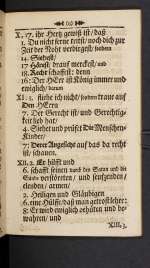 X. 17. ihr Hertz gewiß ist/daß
1. Du nicht ferne tritst/ noch dich zur
Zeit der Noht verbirgest/ sondern
14. Siehest/
17. Hörest/ drauf merckest/ und
18. Recht schaffest: denn
16. Der HErr ist König immer und
ewiglich/ darum
XI. 1. fliehe ich nicht/ sondern traue auf
Den HErrn
7. Der Gerecht ist/ und Gerechtig-
keit lieb hat/
4. Siehet und prüfet Die Menschen-
Kinder/
7. Derer Angesicht auf das da recht
ist/ schauen.
XII. 2. Er hilfft und
6. schafft seinen
verstöreten/ und seufzenden
elenden/ armen/
2. Heiligen und Gläubigen
6. eine Hülffe/ daß man getrost lehre:
8. Er wird ewiglich behüten und be-
wahren/ und
XIII.